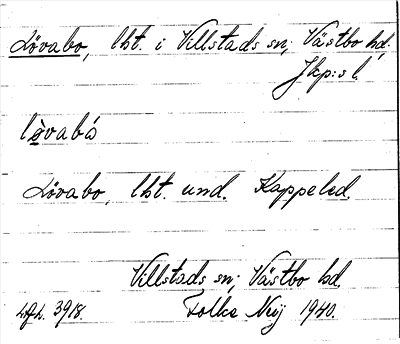 Lövabo, lht. i Villstads sn, Västbo hd.
Jkp:s l.
lòvabó
Lövabo, lht. und. Kappeled.
Villstads sn, Västbo hd.
3918. Folke Nij 1940.